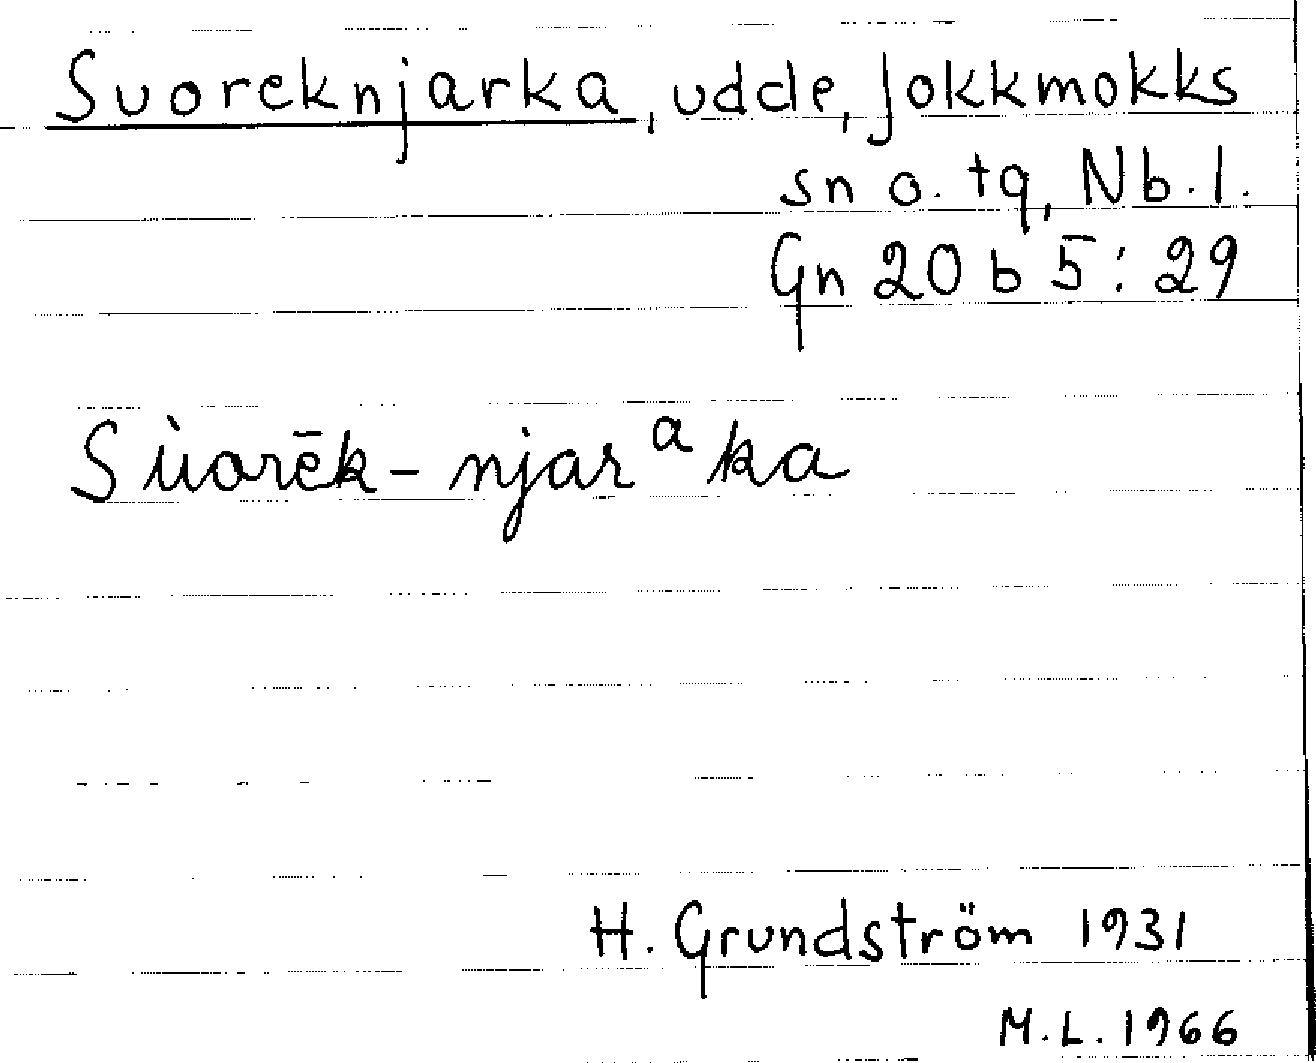 Suoreknjarka, udde, Jokkmokks
sn o. tg, Nb. l.
Gn 20 b 5:29
Sùorēk-njarᵃka
H. Grundström 1931
M.L. 1966